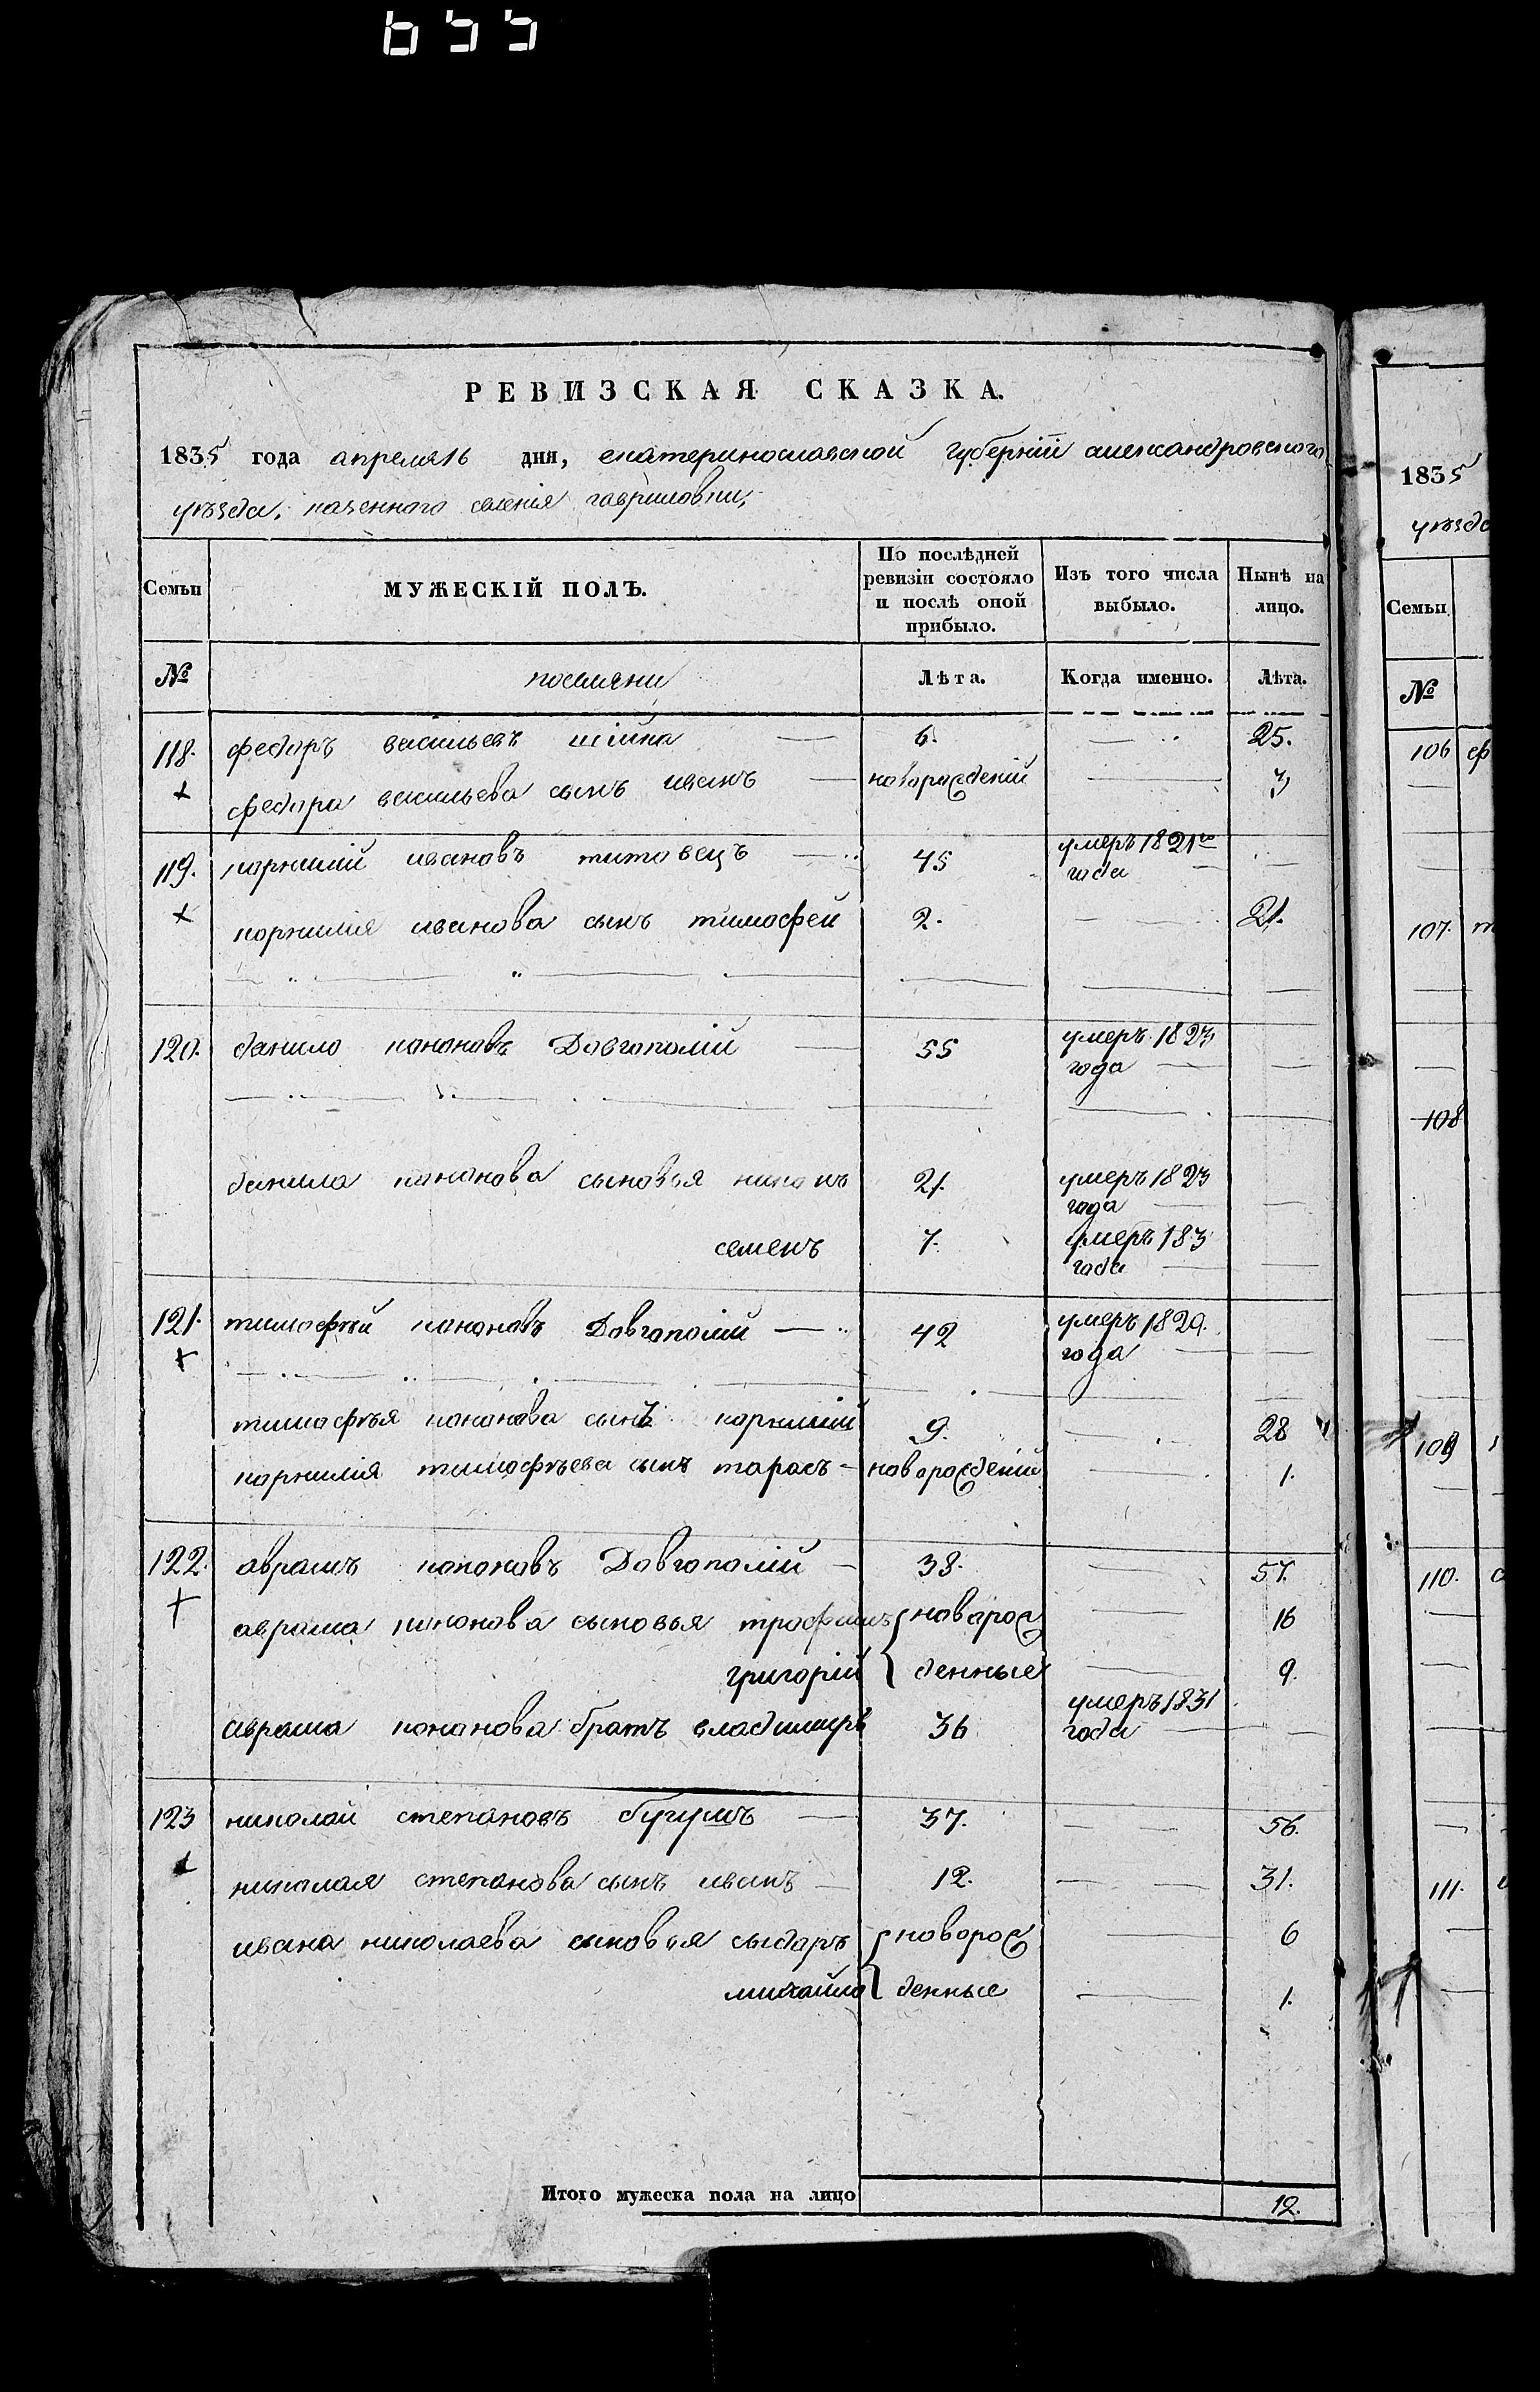 655
РЕВИЗСКАЯ СКАЗКА.
1835 года апреля 16 дня, екатеринославской губернiи александровского
уѣзда, казенного селенiя гавриловки,
Семьи МУЖЕСКIЙ ПОЛЪ. По послѣдней ревизiи состояло и послѣ оной прибыло. Изъ того числа выбыло. Нынѣ на лицо.
№ поселяни Лѣта. Когда именно. Лѣта.
118. федоръ васильевъ 6. 25.
федора васильева сынъ иванъ новорожденiй 3
119. корнилiй ивановъ титовецъ 45 умеръ 1821го года
корнилiя иванова сынъ тимофей 2. 21.
120. данило кононовъ Довгополiй 55 умеръ 1823 года
данила кононова сыновья никонъ 21. умеръ 1823 года
семенъ 7. умеръ 183 года
121. тимофѣй кононовъ Довгополiй 42 умеръ 1829. года
тимофѣя кононова сынъ корнилiй 9. 28
корнилiя тимофѣева сынъ тарасъ новорожденiй 1.
122. аврамъ кононовъ Довгополiй 38. 57.
аврама кононова сыновья трофимъ новорож 16
григорiй денные 9.
аврама кононова братъ владимиръ 36 умеръ 1831 года
123 николай степановъ 37. 56.
николая степанова сынъ иванъ 12. 31.
ивана николаева сыновья сыдоръ новорож 6
михайло денные 1.
Итого мужеска пола на лицо 12.
1835
уѣзда
Семьи
№
106 ф
107. т
108
109
110.
111.